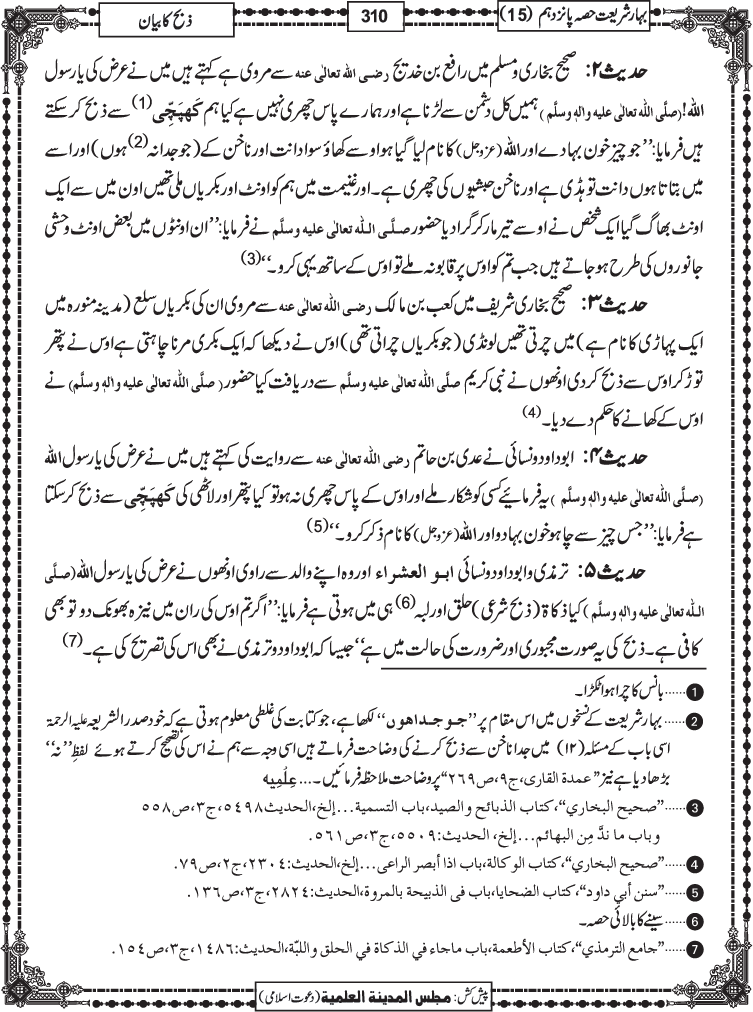 بہارِ شریعت حصہ پانزدہم (15)
310
ذبح کا بیان
حدیث ۲: صحیح بخاری و مسلم میں رافع بن خدیج رضی اللہ تعالیٰ عنہ سے مروی ہے کہتے ہیں میں نے عرض کی یارسول
اللہ! (صلَّی اللہ تعالیٰ علیہ والہٖ وسلَّم) ہمیں کل دشمن سے لڑنا ہے اور ہمارے پاس چھری نہیں ہے کیا ہم کَھپَچِّی(1) سے ذبح کرسکتے
ہیں فرمایا: ’’جو چیز خون بہادے اور اللہ (عزوجل) کا نام لیا گیا ہو اوسے کھاؤ سوا دانت اور ناخن کے (جو جدانہ(2) ہوں) اور اسے
میں بتاتا ہوں دانت تو ہڈی ہے اور ناخن حبشیوں کی چھری ہے۔ اور غنیمت میں ہم کو اونٹ اور بکریاں ملی تھیں اون میں سے ایک
اونٹ بھاگ گیا ایک شخص نے اوسے تیر مار کر گرا دیا حضور صلَّی اللہ تعالیٰ علیہ وسلَّم نے فرمایا: ’’ان اونٹوں میں بعض اونٹ وحشی
جانوروں کی طرح ہو جاتے ہیں جب تم کو اوس پر قابو نہ ملے تو اوس کے ساتھ یہی کرو۔‘‘(3)
حدیث ۳: صحیح بخاری شریف میں کعب بن مالک رضی اللہ تعالیٰ عنہ سے مروی ان کی بکریاں سلع (مدینہ منورہ میں
ایک پہاڑی کا نام ہے) میں چرتی تھیں لونڈی (جو بکریاں چراتی تھی) اوس نے دیکھا کہ ایک بکری مرنا چاہتی ہے اوس نے پتھر
توڑ کر اوس سے ذبح کردی اونھوں نے نبی کریم صلَّی اللہ تعالیٰ علیہ وسلَّم سے دریافت کیا حضور (صلَّی اللہ تعالیٰ علیہ والہٖ وسلَّم) نے
اوس کے کھانے کا حکم دے دیا۔(4)
حدیث ۴: ابوداود و نسائی نے عدی بن حاتم رضی اللہ تعالیٰ عنہ سے روایت کی کہتے ہیں میں نے عرض کی یارسول اللہ
(صلَّی اللہ تعالیٰ علیہ والہٖ وسلَّم) یہ فرمائیے کسی کو شکار ملے اور اوس کے پاس چھری نہ ہو تو کیا پتھر اور لاٹھی کی کَھپَچِّی سے ذبح کرسکتا
ہے فرمایا: ’’جس چیز سے چاہو خون بہادو اور اللہ (عزوجل) کا نام ذکر کرو۔‘‘(5)
حدیث ۵: ترمذی و ابوداود و نسائی ابو العشراء اور وہ اپنے والد سے راوی اونھوں نے عرض کی یارسول اللہ (صلَّی
اللہ تعالیٰ علیہ والہٖ وسلَّم) کیا ذکاۃ (ذبح شرعی) حلق اور لبہ(6) ہی میں ہوتی ہے فرمایا: ’’اگر تم اوس کی ران میں نیزہ بھونک دو تو بھی
کافی ہے۔ ذبح کی یہ صورت مجبوری اور ضرورت کی حالت میں ہے‘‘ جیسا کہ ابوداود و ترمذی نے بھی اس کی تصریح کی ہے۔(7)
1 ......بانس کا چرا ہوا ٹکڑا۔
2 ......بہار شریعت کے نسخوں میں اس مقام پر ’’جو جدا ہوں‘‘ لکھا ہے، جو کتابت کی غلطی معلوم ہوتی ہے کہ خود صدر الشریعہ علیہ الرحمۃ
اسی باب کے مسئلہ (۱۲) میں جدا ناخن سے ذبح کرنے کی وضاحت فرماتے ہیں اسی وجہ سے ہم نے اس کی تصحیح کرتے ہوئے لفظِ ’’نہ‘‘
بڑھا دیا ہے نیز ’’عمدۃ القاری، ج۹، ص۲۶۹‘‘ پر وضاحت ملاحظہ فرمائیں۔... عِلْمِیہ
3 ......’’صحیح البخاري‘‘، کتاب الذبائح والصید، باب التسمیۃ... إلخ، الحدیث ۵۴۹۸، ج۳، ص۵۵۸
وباب ما ندَّ مِن البھائم... إلخ، الحدیث: ۵۵۰۹، ج۳، ص۵۶۱.
4 ......’’صحیح البخاري‘‘، کتاب الوکالۃ، باب اذا أبصر الراعی... إلخ، الحدیث: ۲۳۰۴، ج۲، ص۷۹.
5 ......’’سنن أبي داود‘‘، کتاب الضحایا، باب فی الذبیحۃ بالمروۃ، الحدیث: ۲۸۲۴، ج۳، ص۱۳۶.
6 ......سینے کا بالائی حصہ۔
7 ......’’جامع الترمذي‘‘، کتاب الأطعمۃ، باب ماجاء في الذکاۃ في الحلق واللبّۃ، الحدیث: ۱۴۸۶، ج۳، ص۱۵۴.
پیش کش: مجلس المدینۃ العلمیۃ (دعوت اسلامی)